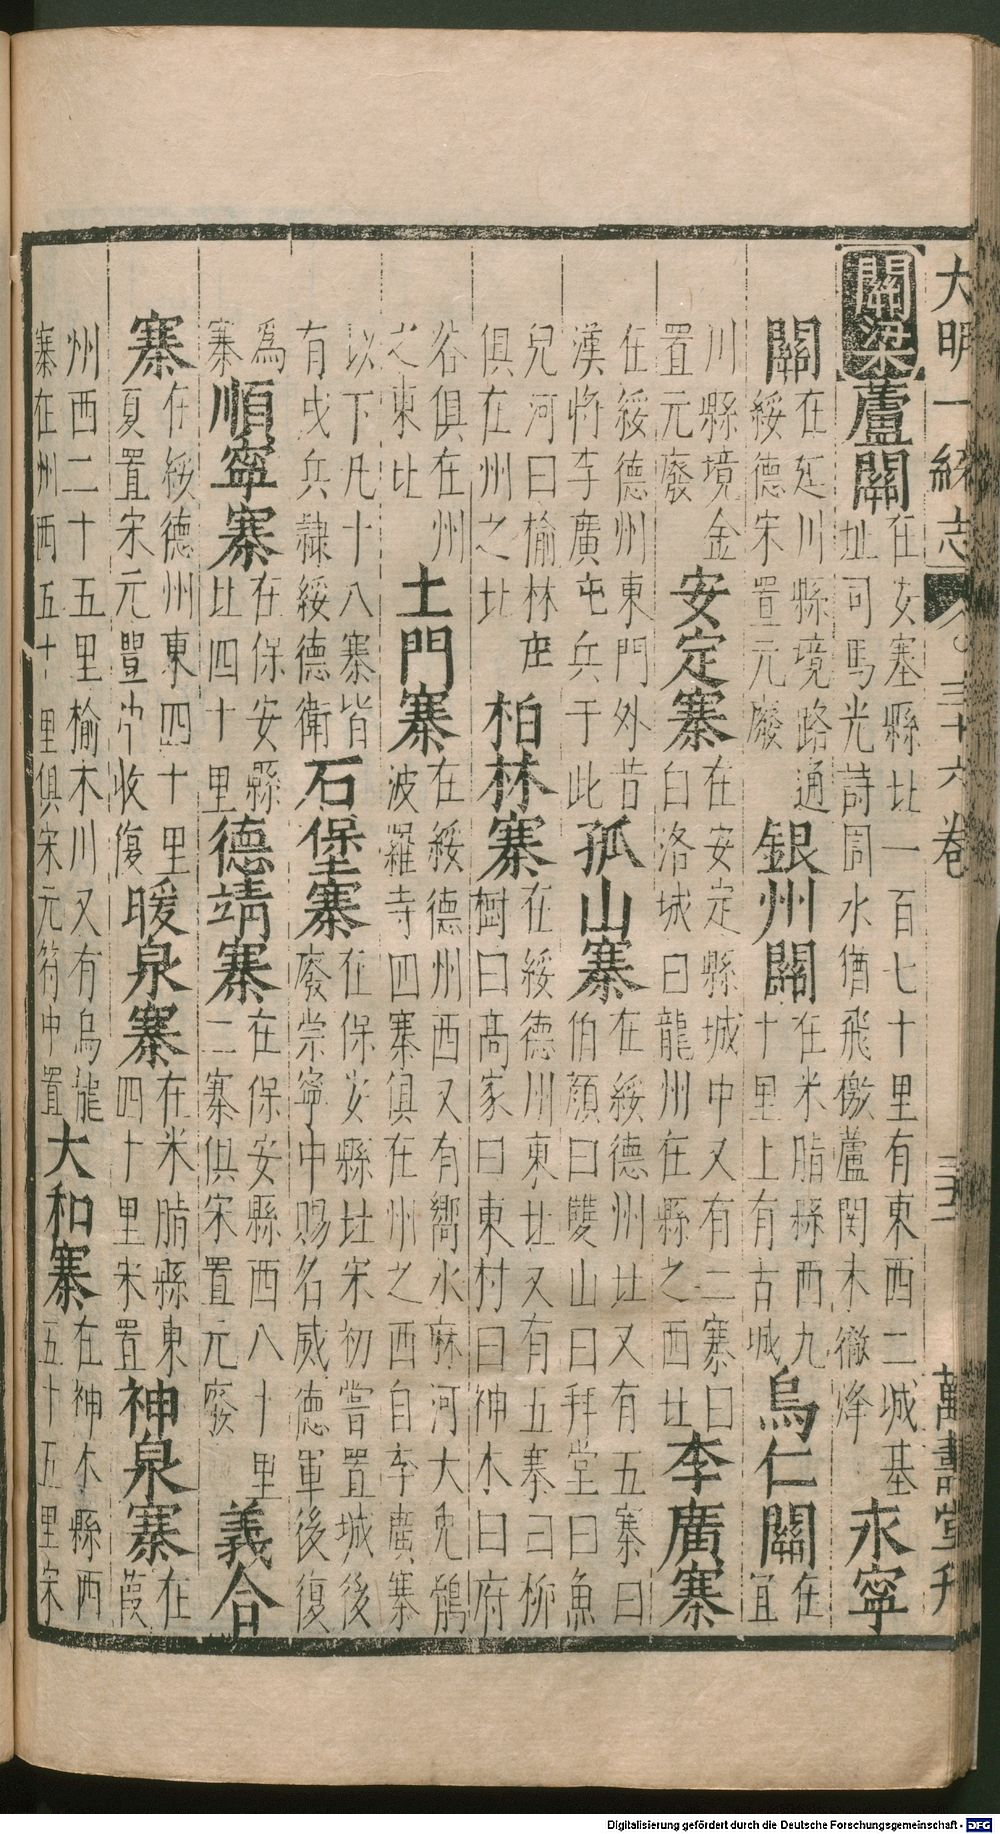 大明一統志 三十六卷 三十二 萬壽堂刊
關梁
蘆關
在安塞縣北一百七十里有東西二城基
址司馬光詩同水猶飛檄蘆関未徹烽
永寧
關
在延川縣境路通
綏德宋置元廢
銀州關
在米脂縣西九
十里上有古城
烏仁關
在
宜
川縣境金
置元廢
安定寨
在安定縣城中又有二寨曰
白洛城曰龍州在縣之西北
李廣寨
在綏德州東門外昔
漢將李廣屯兵于此
孤山寨
在綏德州北又有五寨曰
伯顏曰雙山曰拜堂曰魚
兒河曰榆林庄
俱在州之北
柏林寨
在綏德州東北又有五寨曰柳
樹曰高家曰東村曰神木曰府
谷俱在州
之東北
土門寨
在綏德州西又有嚮水麻河大兔鶻
波羅寺四寨俱在州之西自李廣寨
以下凡十八寨皆
有戍兵隸綏德衛
石堡寨
在保安縣北宋初嘗置城後
廢崇寧中賜名威德軍後復
為
寨
順寧寨
在保安縣
北四十里
德靖寨
在保安縣西八十里
二寨俱宋置元廢
義合
寨
在綏德州東四十里
夏置宋元豐中收復
暖泉寨
在米脂縣東
四十里宋置
神泉寨
在
葭
州西二十五里榆木川又有烏龍
寨在州西五十里俱宋元符中置
大和寨
在神木縣西
五十五里宋
Digitalisierung gefördert durch die Deutsche Forschungsgemeinschaft - DFG